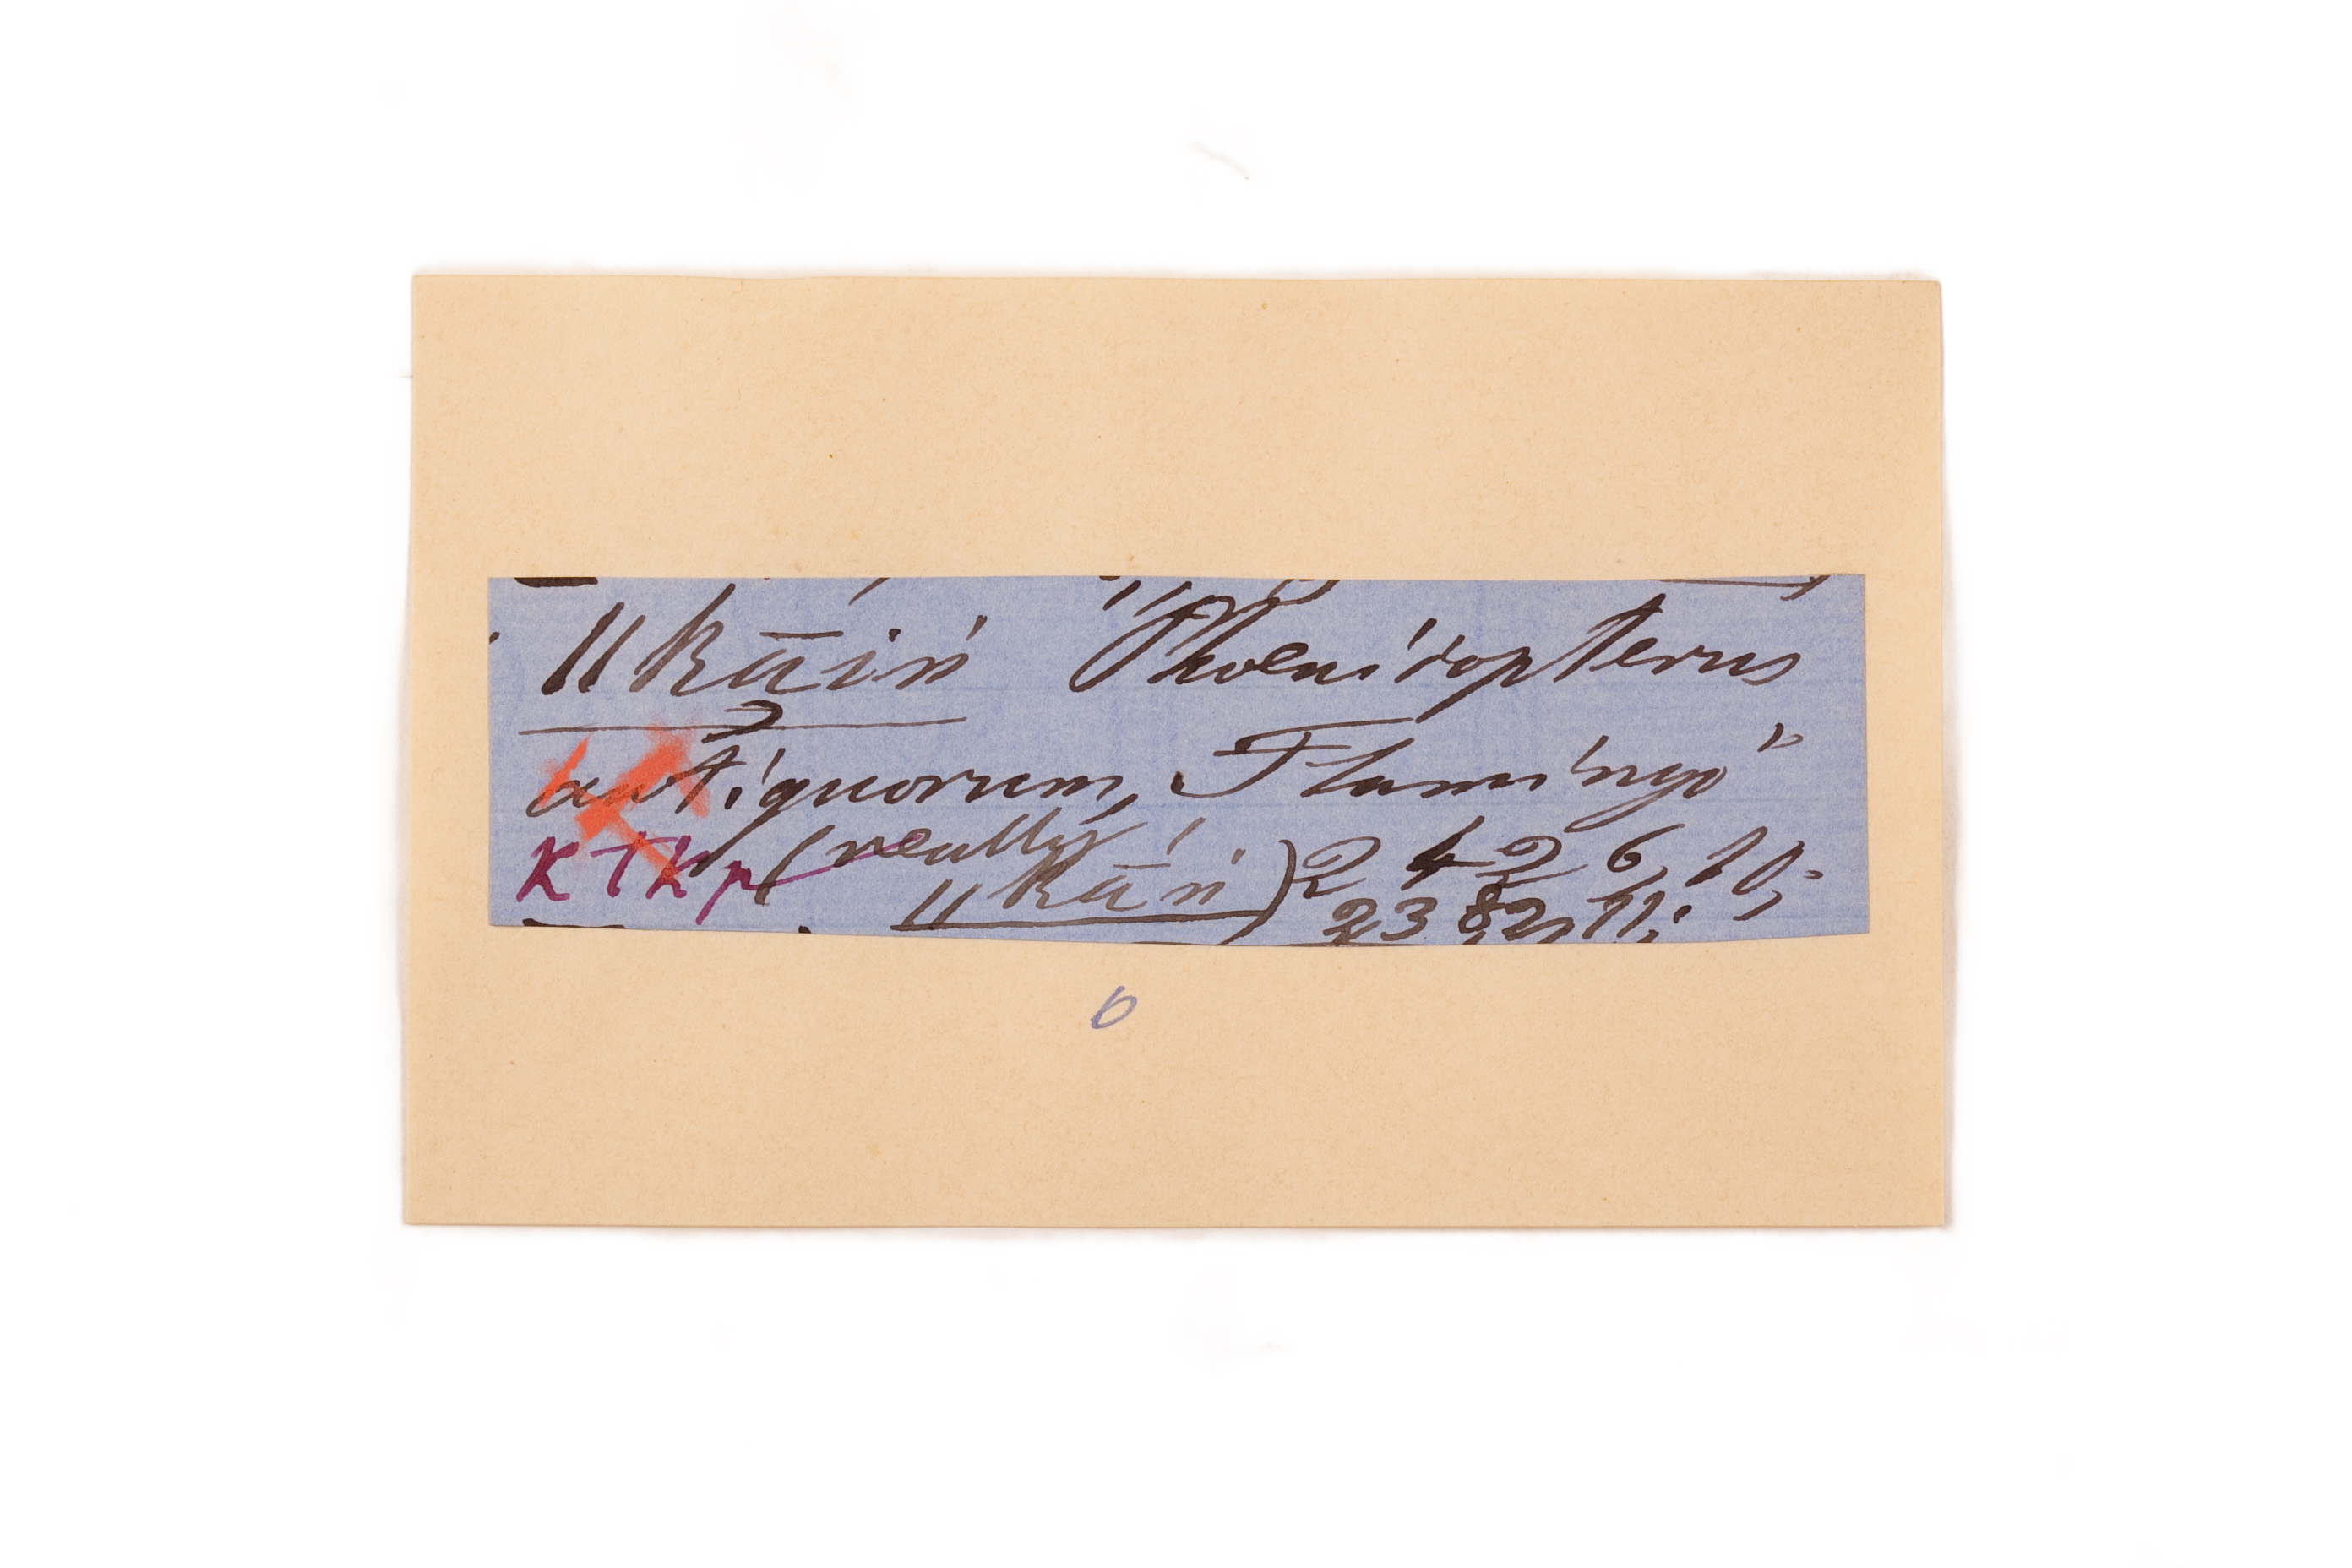 ǁkāiń Phoenicopterus
antiquorum, Flamingo"
KTKp (really
ǁkāń) 2 4 2 6, 10;
2382, 11;
6